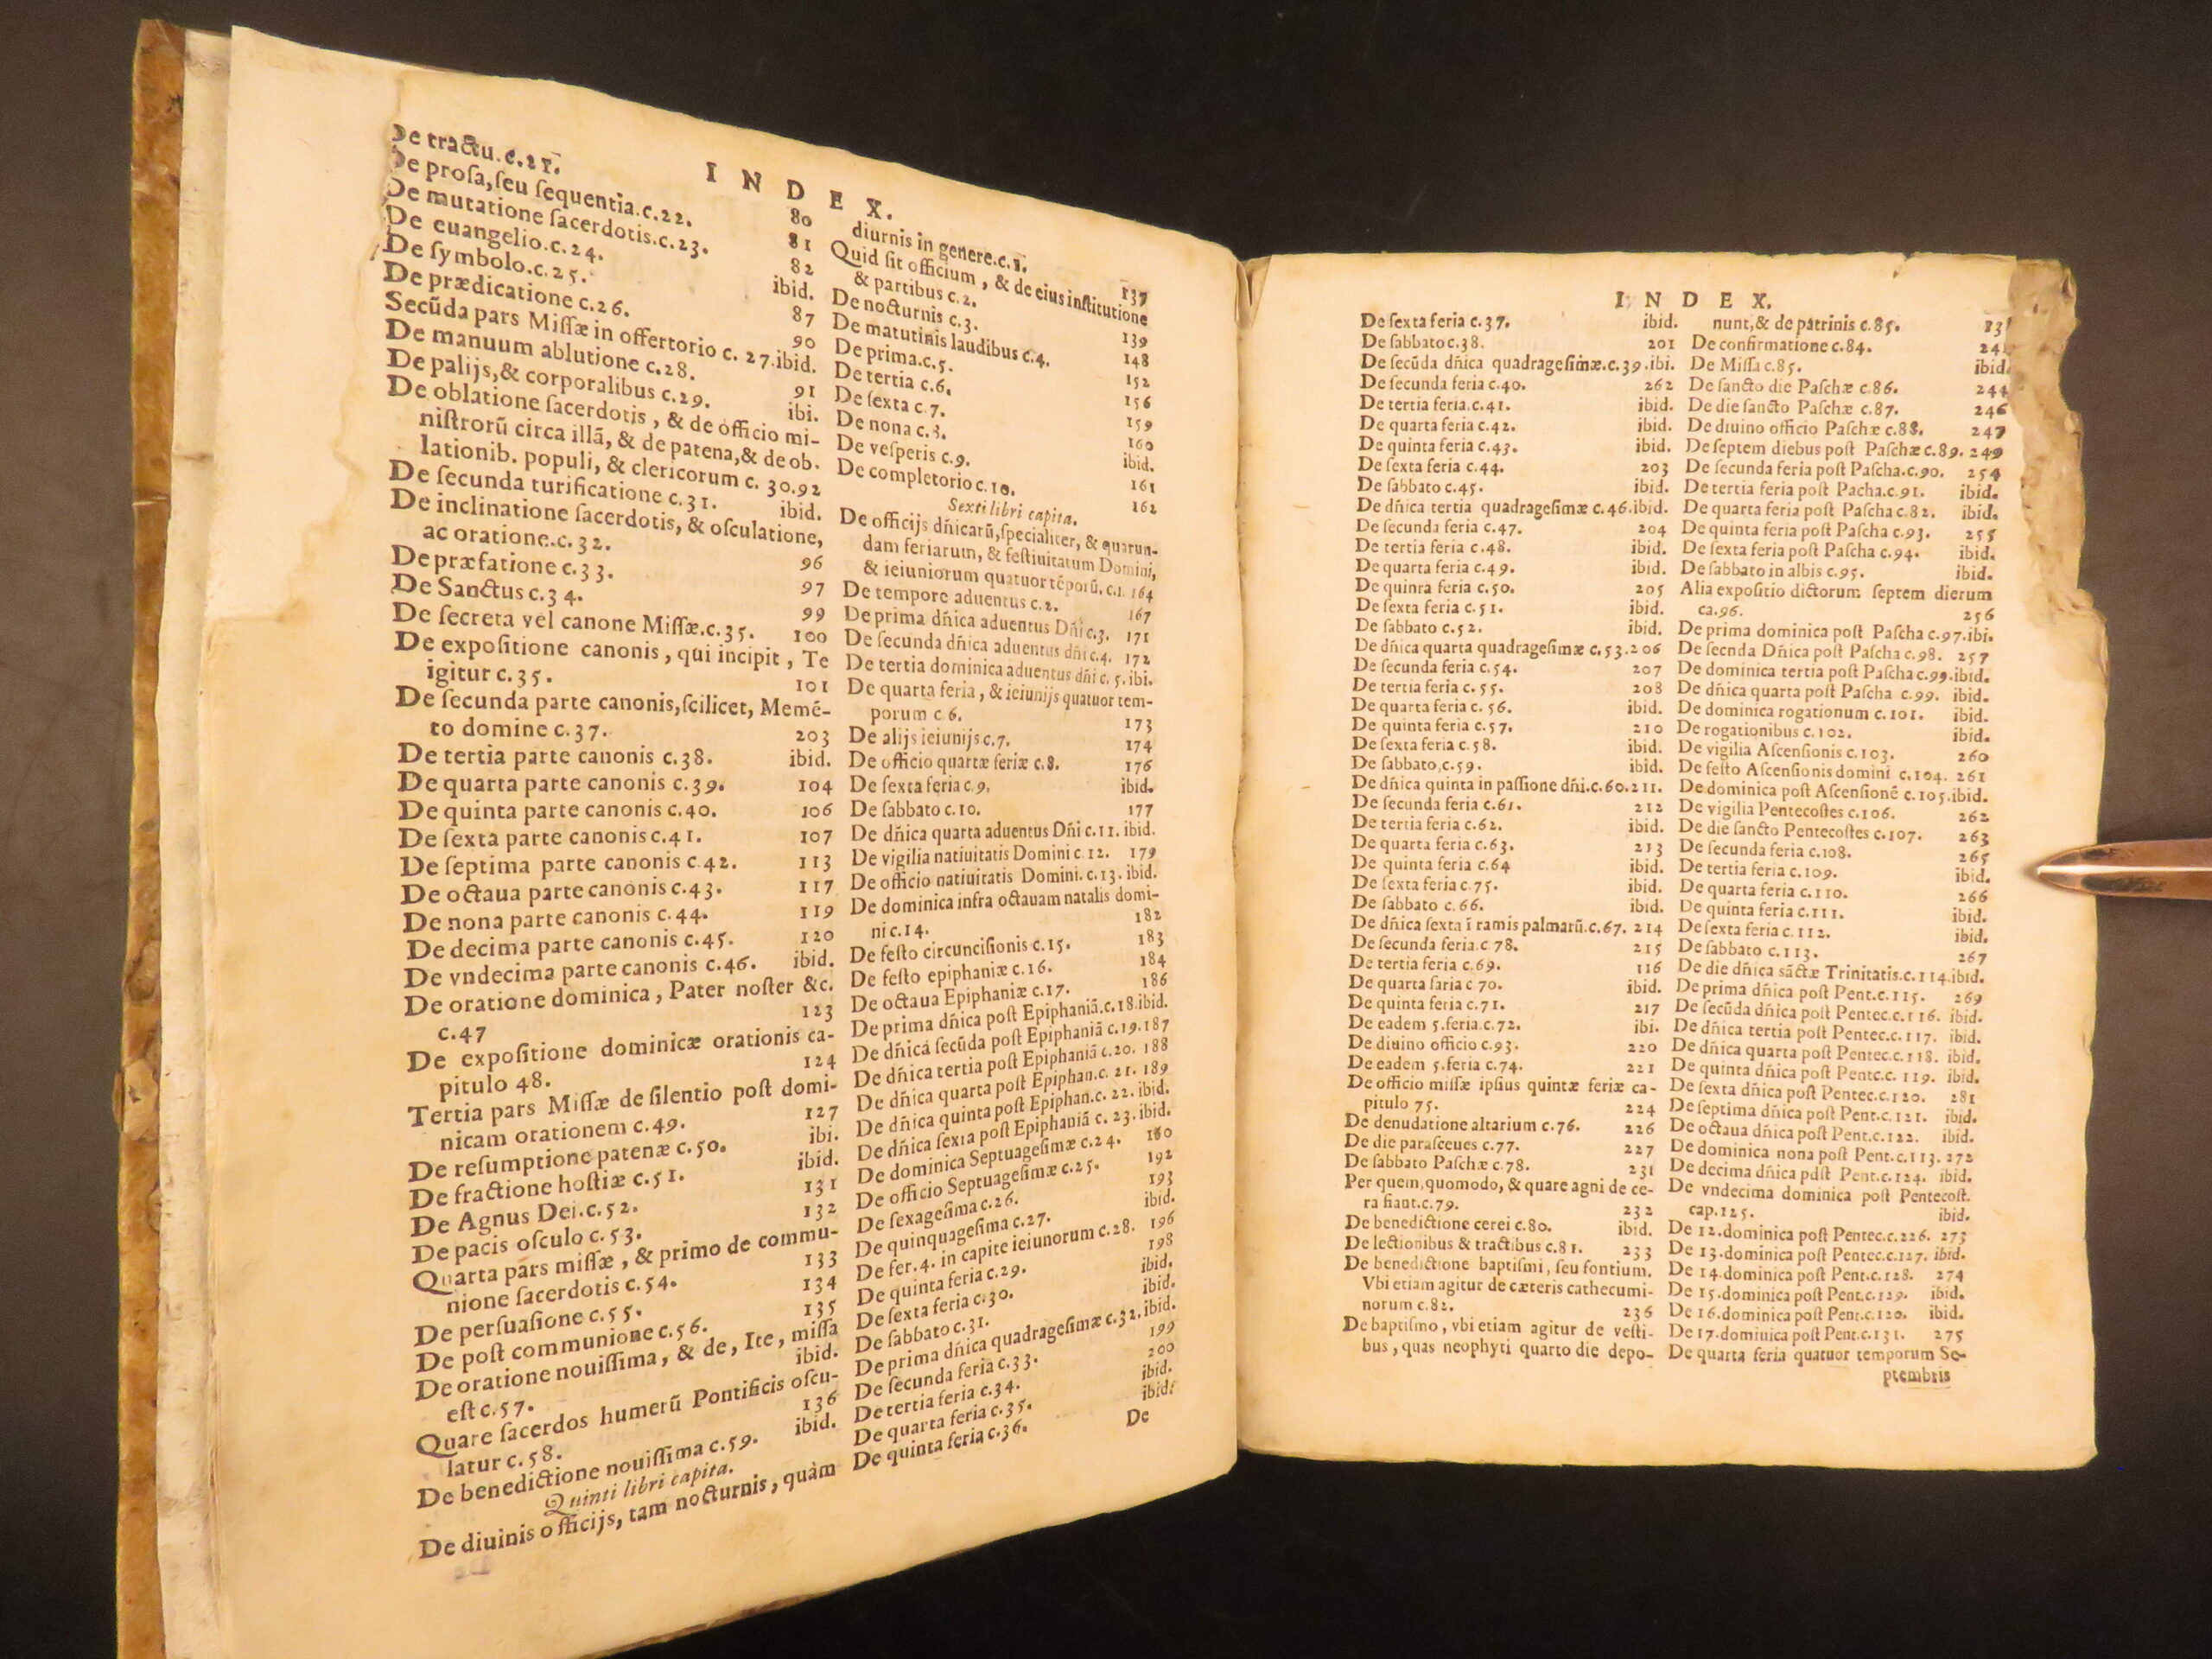 INDEX.
De tractu.c.21. 80
De prosa,seu sequentia.c.22. 81
De mutatione sacerdotis.c.23. 82
De euangelio.c.24. ibid.
De symbolo.c.25. 87
De prædicatione c.26. 90
Secũda pars Missæ in offertorio c. 27.ibid.
De manuum ablutione c.28. 91
De palijs,& corporalibus c.29. ibi.
De oblatione sacerdotis, & de officio mi-
nistrorũ circa illã, & de patena,& de ob.
lationib. populi, & clericorum c. 30.92
De secunda turificatione c.31. ibid.
De inclinatione sacerdotis, & osculatione,
ac oratione.c.32. 96
De præfatione c.33. 97
De Sanctus c.34. 99
De secreta vel canone Missæ.c.35. 100
De expositione canonis, qui incipit, Te
igitur c.35. 101
De secunda parte canonis,scilicet, Memẽ-
to domine c.37. 203
De tertia parte canonis c.38. ibid.
De quarta parte canonis c.39. 104
De quinta parte canonis c.40. 106
De sexta parte canonis c.41. 107
De septima parte canonis c.42. 113
De octaua parte canonis c.43. 117
De nona parte canonis c.44. 119
De decima parte canonis c.45. 120
De vndecima parte canonis c.46. ibid.
De oratione dominica, Pater noster &c.
c.47 123
De expositione dominicæ orationis ca-
pitulo 48. 124
Tertia pars Missæ de silentio post domi-
nicam orationem c.49. 127
De resumptione patenæ c.50. ibi.
De fractione hostiæ c.51. ibid.
De Agnus Dei.c.52. 131
De pacis osculo c.53. 132
Quarta pars missæ, & primo de commu-
nione sacerdotis c.54. 133
De persuasione c.55. 134
De post communione c.56. 135
De oratione nouissima, & de, Ite, missa
est c.57. ibid.
Quare sacerdos humerũ Pontificis oscu-
latur c.58. 136
De benedictione nouissima c.59. ibid.
Quinti libri capita.
De diuinis officijs, tam nocturnis, quàm
diurnis in genere.c.1. 137
Quid sit officium, & de eius institutione
& partibus c.2. 139
De nocturnis c.3. 148
De matutinis laudibus c.4. 152
De prima.c.5. 156
De tertia c.6. 159
De sexta c.7. 160
De nona c.8. ibid.
De vesperis c.9. 161
De completorio c.10. 162
Sexti libri capita.
De officijs dñicarũ,specialiter, & quarun-
dam feriarum, & festiuitatum Domini,
& ieiuniorum quatuor tẽporũ. c.1. 164
De tempore aduentus c.2. 167
De prima dñica aduentus Dñi c.3. 171
De secunda dñica aduentus dñi c.4. 172
De tertia dominica aduentus dñi c. 5.ibi.
De quarta feria, & ieiunijs quatuor tem-
porum c 6. 173
De alijs ieiunijs c.7. 174
De officio quartæ feriæ c.8. 176
De sexta feria c.9. ibid.
De sabbato c.10. 177
De dñica quarta aduentus Dñi c.11. ibid.
De vigilia natiuitatis Domini c 12. 179
De officio natiuitatis Domini. c.13. ibid.
De dominica infra octauam natalis domi-
ni c.14. 182
De festo circuncisionis c.15. 183
De festo epiphaniæ c.16. 184
De octaua Epiphaniæ c.17. 186
De prima dñica post Epiphaniã.c.18.ibid.
De dñica secũda post Epiphaniã c.19.187
De dñica tertia post Epiphaniã c.20. 188
De dñica quarta post Epiphan.c. 21. 189
De dñica quinta post Epiphan.c. 22. ibid.
De dñica sexta post Epiphaniã c. 23.ibid.
De dominica Septuagesimæ c.24. 180
De officio Septuagesimæ c.25. 192
De sexagesima c.26. 193
De quinquagesima c.27. ibid.
De fer.4. in capite ieiunorum c.28. 196
De quinta feria c.29. 198
De sexta feria c.30. ibid.
De sabbato c.31. ibid.
De prima dñica quadragesimæ c.32.ibid.
De secunda feria c.33. 199
De tertia feria c.34. 200
De quarta feria c.35. ibid.
De quinta feria c.36. ibid.
De
INDEX.
De sexta feria c.37. ibid.
De sabbato c.38. 201
De secũda dñica quadragesimæ.c.39.ibi.
De secunda feria c.40. 262
De tertia feria.c.41. ibid.
De quarta feria c.42. ibid.
De quinta feria c.43. ibid.
De sexta feria c.44. 203
De sabbato c.45. ibid.
De dñica tertia quadragesimæ c.46.ibid.
De secunda feria c.47. 204
De tertia feria c.48. ibid.
De quarta feria c.49. ibid.
De quinra feria c.50. 205
De sexta feria c.51. ibid.
De sabbato c.52. ibid.
De dñica quarta quadragesimæ c.53.206
De secunda feria c.54. 207
De tertia feria c.55. 208
De quarta feria c.56. ibid.
De quinta feria c.57. 210
De sexta feria c.58. ibid.
De sabbato,c.59. ibid.
De dñica quinta in passione dñi.c.60.211.
De secunda feria c.61. 212
De tertia feria c.62. ibid.
De quarta feria c.63. 213
De quinta feria c.64 ibid.
De sexta feria c.75. ibid.
De sabbato c.66. ibid.
De dñica sexta ĩ ramis palmarũ.c.67. 214
De secunda feria.c 78. 215
De tertia feria c.69. 116
De quarta faria c 70. ibid.
De quinta feria c.71. 217
De eadem 5.feria.c.72. ibi.
De diuino officio c.93. 220
De eadem 5.feria c.74. 221
De officio missæ ipsius quintæ feriæ ca-
pitulo 75. 224
De denudatione altarium c.76. 226
De die parasceues c.77. 227
De sabbato Paschæ c.78. 231
Per quem,quomodo, & quare agni de ce-
ra fiant.c.79. 232
De benedictione cerei c.80. ibid.
De lectionibus & tractibus c.81. 233
De benedictione baptismi, seu fontium.
Vbi etiam agitur de cæteris cathecumi-
norum c.82. 236
De baptismo, vbi etiam agitur de vesti-
bus, quas neophyti quarto die depo-
nunt,& de patrinis c.85.
De confirmatione c.84.
De Missa c.85. ibid.
De sancto die Paschæ c.86. 244
De die sancto Paschæ c.87. 246
De diuino officio Paschæ c.88. 247
De septem diebus post Paschæ c.89. 249
De secunda feria post Pascha.c.90. 254
De tertia feria post Pacha.c.91. ibid.
De quarta feria post Pascha c.82. ibid.
De quinta feria post Pascha c.93. 255
De sexta feria post Pascha c.94. ibid.
De sabbato in albis c.95. ibid.
Alia expositio dictorum septem dierum
ca.96. 256
De prima dominica post Pascha c.97.ibi.
De secnda Dñica post Pascha c.98. 257
De dominica tertia post Pascha c.99.ibid.
De dñica quarta post Pascha c.99. ibid.
De dominica rogationum c.101. ibid.
De rogationibus c.102. ibid.
De vigilia Ascensionis c.103. 260
De festo Ascensionis domini c.104. 261
De dominica post Ascensionẽ c.105.ibid.
De vigilia Pentecostes c.106. 262
De die sancto Pentecostes c.107. 263
De secunda feria c.108. 265
De tertia feria c.109. ibid.
De quarta feria c.110. 266
De quinta feria c.111. ibid.
De sexta feria c.112. ibid.
De sabbato c.113. 267
De die dñica sãctæ Trinitatis.c.114.ibid.
De prima dñica post Pent.c.115. 269
De secũda dñica post Pentec.c.116. ibid.
De dñica tertia post Pentec.c.117. ibid.
De dñica quarta post Pentec.c.118. ibid.
De quinta dñica post Pentc.c. 119. ibid.
De sexta dñica post Pentec.c.120. 281
De septima dñica post Pent.c.121. ibid.
De octaua dñica post Pent.c.122. ibid.
De dominica nona post Pent.c.113.272
De decima dñica pdst Pent.c.124. ibid.
De vndecima dominica post Pentecost.
cap.125. ibid.
De 12.dominica post Pentec.c.226. 273
De 13.dominica post Pentec.c.127. ibid.
De 14.dominica post Pent.c.128. 274
De 15.dominica post Pent.c.129. ibid.
De 16.dominica post Pent.c.120. ibid.
De 17.domiuica post Pent.c.131. 275
De quarta feria quatuor temporum Se-
ptembris